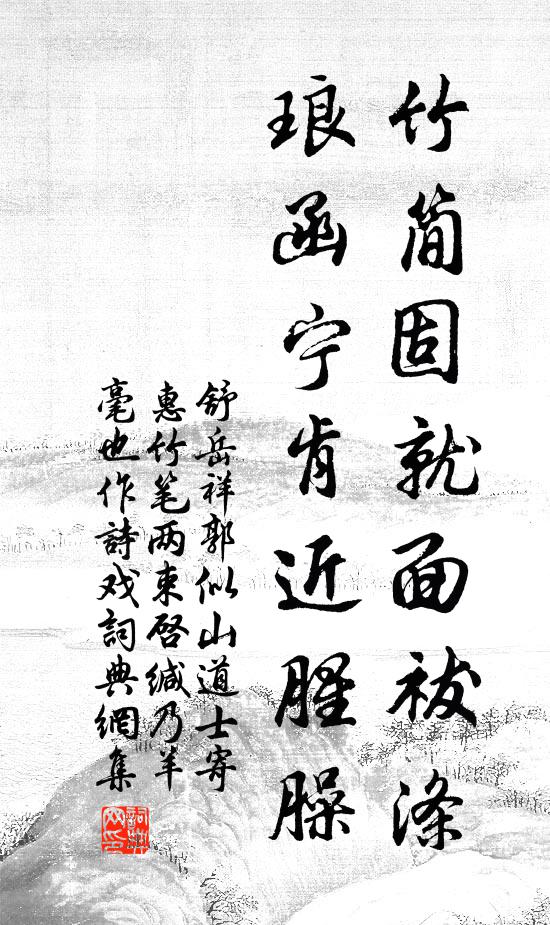 竹简固就面祓涤
琅函宁肯近腥臊
舒岳祥郭似山道士寄
惠竹笔两束启缄乃羊
毫也作詩戏詞典網集